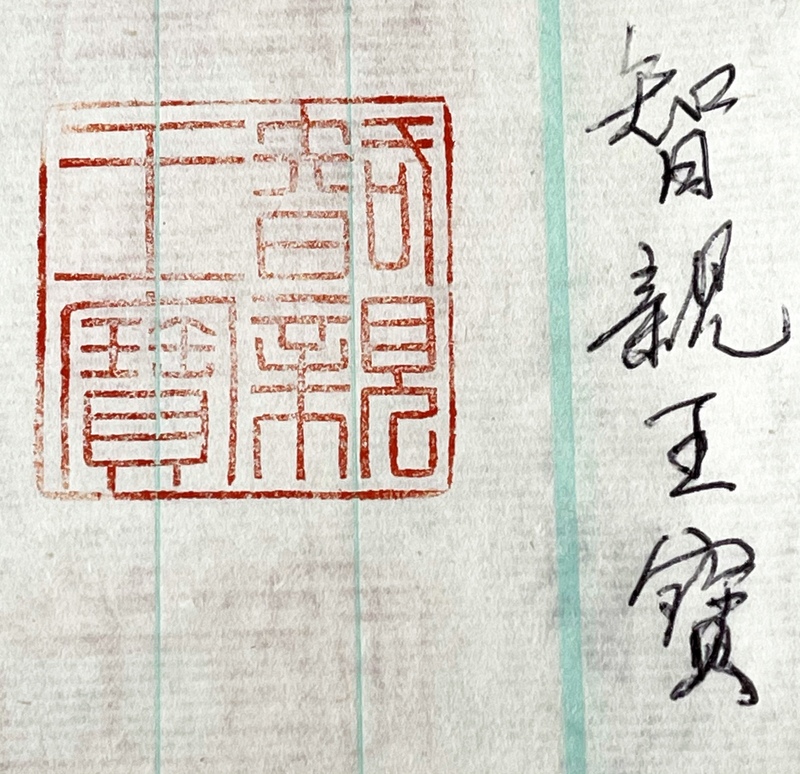 智親王寶
智親
王寶